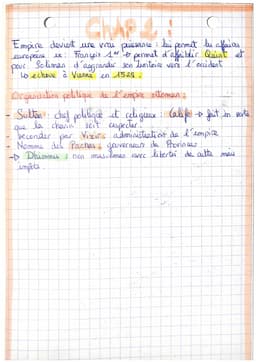 Chap 1 :
Empire devient une vrai puissance : lui permet les affaires
européene ex : François 1er → permet d'affaiblir Quint et
pour Soliman d'aggrandir son territoire vers l'occident
Lo échoue à Vienne en 1529.
Organisation politique de l'empire ottoman :
- Sultan : chef politique et religieux : Calife → fait en sorte
que la charia soit respecter.
- Seconder par Vizirs : administration de l'empire
Nomme des Pachas : gouverneur de Provinces
→ Dhimmis : non musulmans avec liberté de culte mais
impôts.